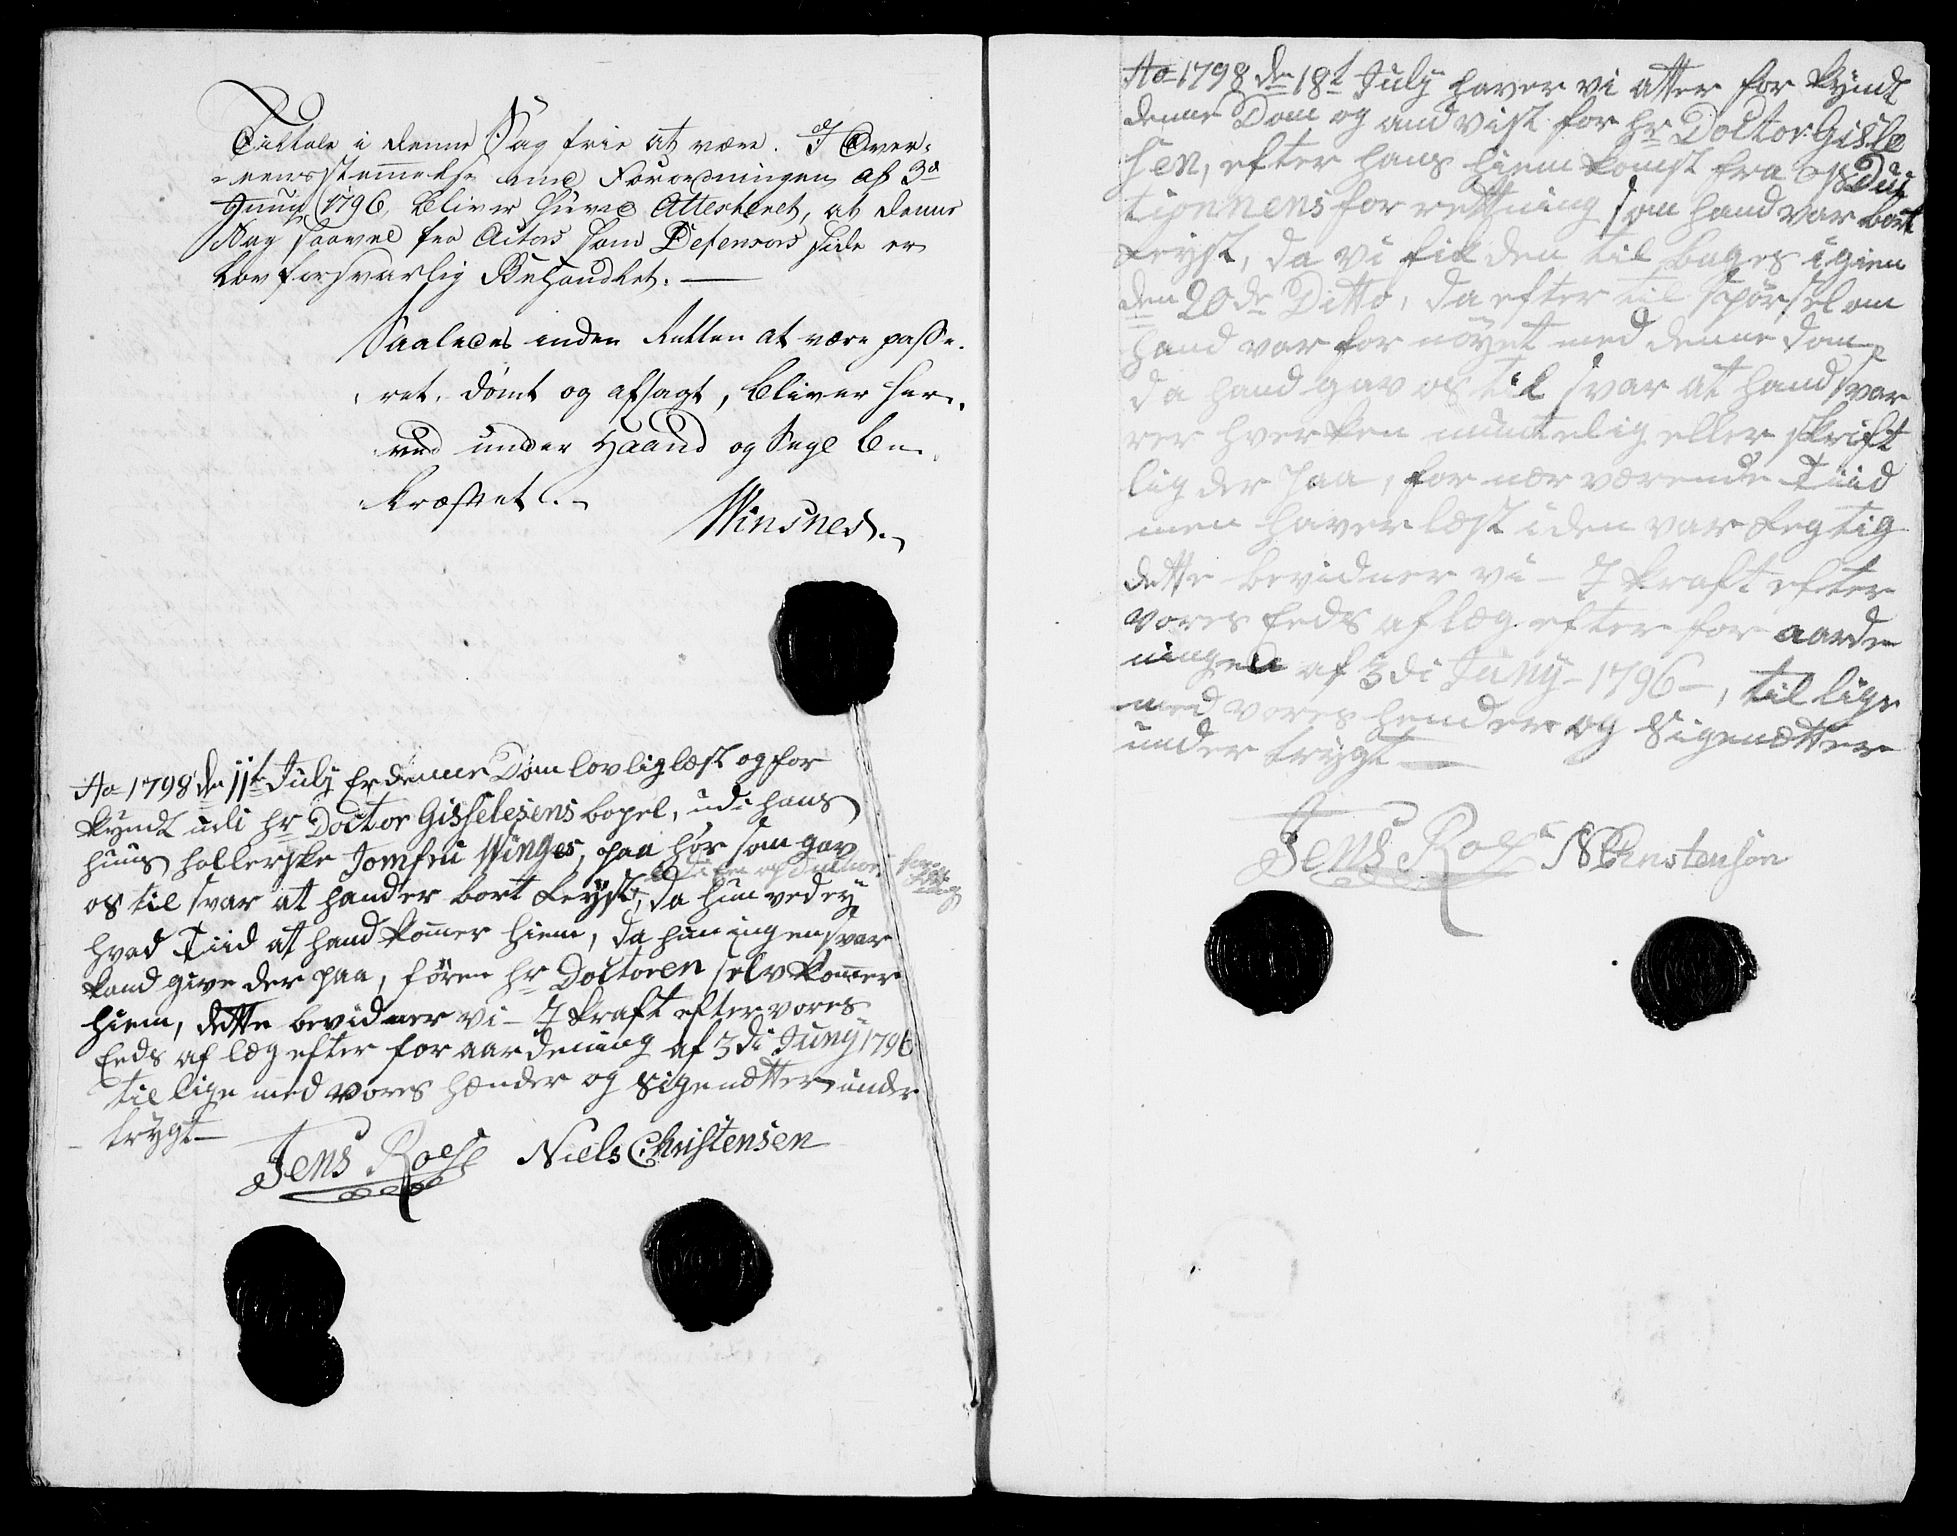 Tiltale i denne Sag frie at være. I Over-
eensstemmelse med Forordningen af 3d
Juny 1796, bliver hervd Attesteret, at denne
Sag saavel fra Actors som Defensors Side er
Lovforsvarlig Behandlet. —
Saaledes inden Retten at være passe-
ret, dømt og afsagt, bliver her-
ved under Haand og Segl be-
kræftet. -
Winsnes.
Ao 1798 dn 11te July Er denne Dom lovlig læst og for
kyndt udi hr Doctor Gisselesens bopel, udi hans
huus hollerske Jomfru Winges, paa hør som gav
os til svar at hand er bort Reyst, da hun ved ey
hvad Tiid at hand kommer hiem, da hun ingen svar
kand give der paa, føren hr Doctoren selv kommer
hiem, dette bevidner vi - I kraft efter vores
Eeds af læg efter for aardening af 3di Juny 1796
til lige med vores hænder og Signætter under
trÿgt —
Jens Roese Niels Christensen
Ao 1798 dn 18t July haver vi atter for kyndt
denne Dom og andvist for hr Doctor Gisle
sen, efter hans hiem komst fra Obdui
tionnens for rettning som hand var bort
Reyst, da vi fik den til bages igien
den 20de Ditto, da efter til spørsel om
hand var for nøyet med denne dom
da hand gav os til svar at hand svar
rer hverken muntelig eller skrift
lig der paa, for nær værende Tiid
men haver læst iden var Regtig
dette bevidner vi - I kraft efter
vores Eeds aflæg efter for aarde
ningen af 3di Juny - 1796 -, til lige
med vores hender og Signætter
under trygt —
Jens Roese N Christensen